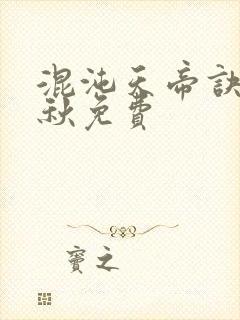 混沌天帝訣
秋免費
竇之